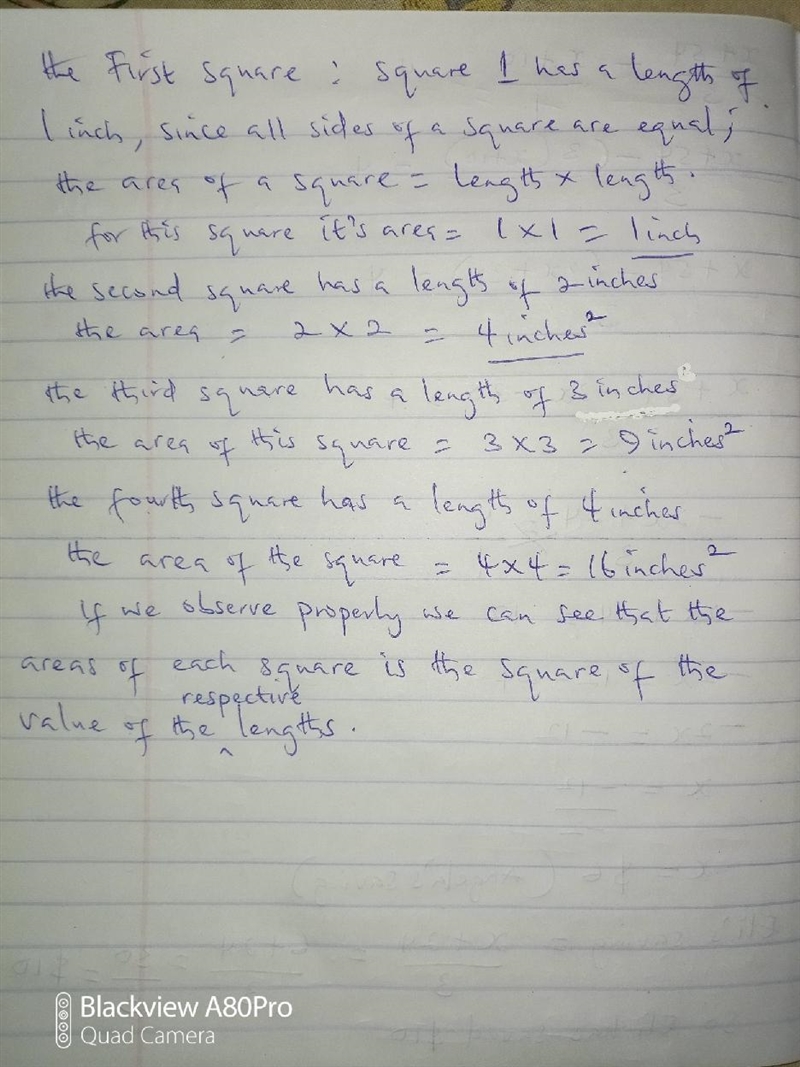 the First square : square 1 has a length of
1 inch, since all sides of a square are equal;
the area of a square = length x length.
for this square it's area = 1 x 1 = 1 inch
the second square has a length of 2 inches
the area = 2 x 2 = 4 inches²
the third square has a length of 3 inches
the area of this square = 3 x 3 = 9 inches²
the fourth square has a length of 4 inches
the area of the square = 4 x 4 = 16 inches²
If we observe properly we can see that the
areas of each square is the square of the
value of the respective lengths.
Blackview A80Pro
Quad Camera